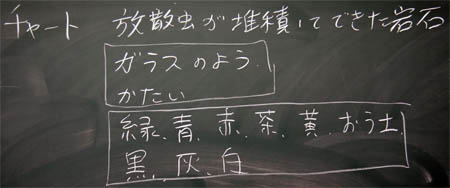 チャート 放散虫が堆積してできた岩石
ガラスのよう.
かたい
緑、青、赤、茶、黄、おう土、
黒、灰、白